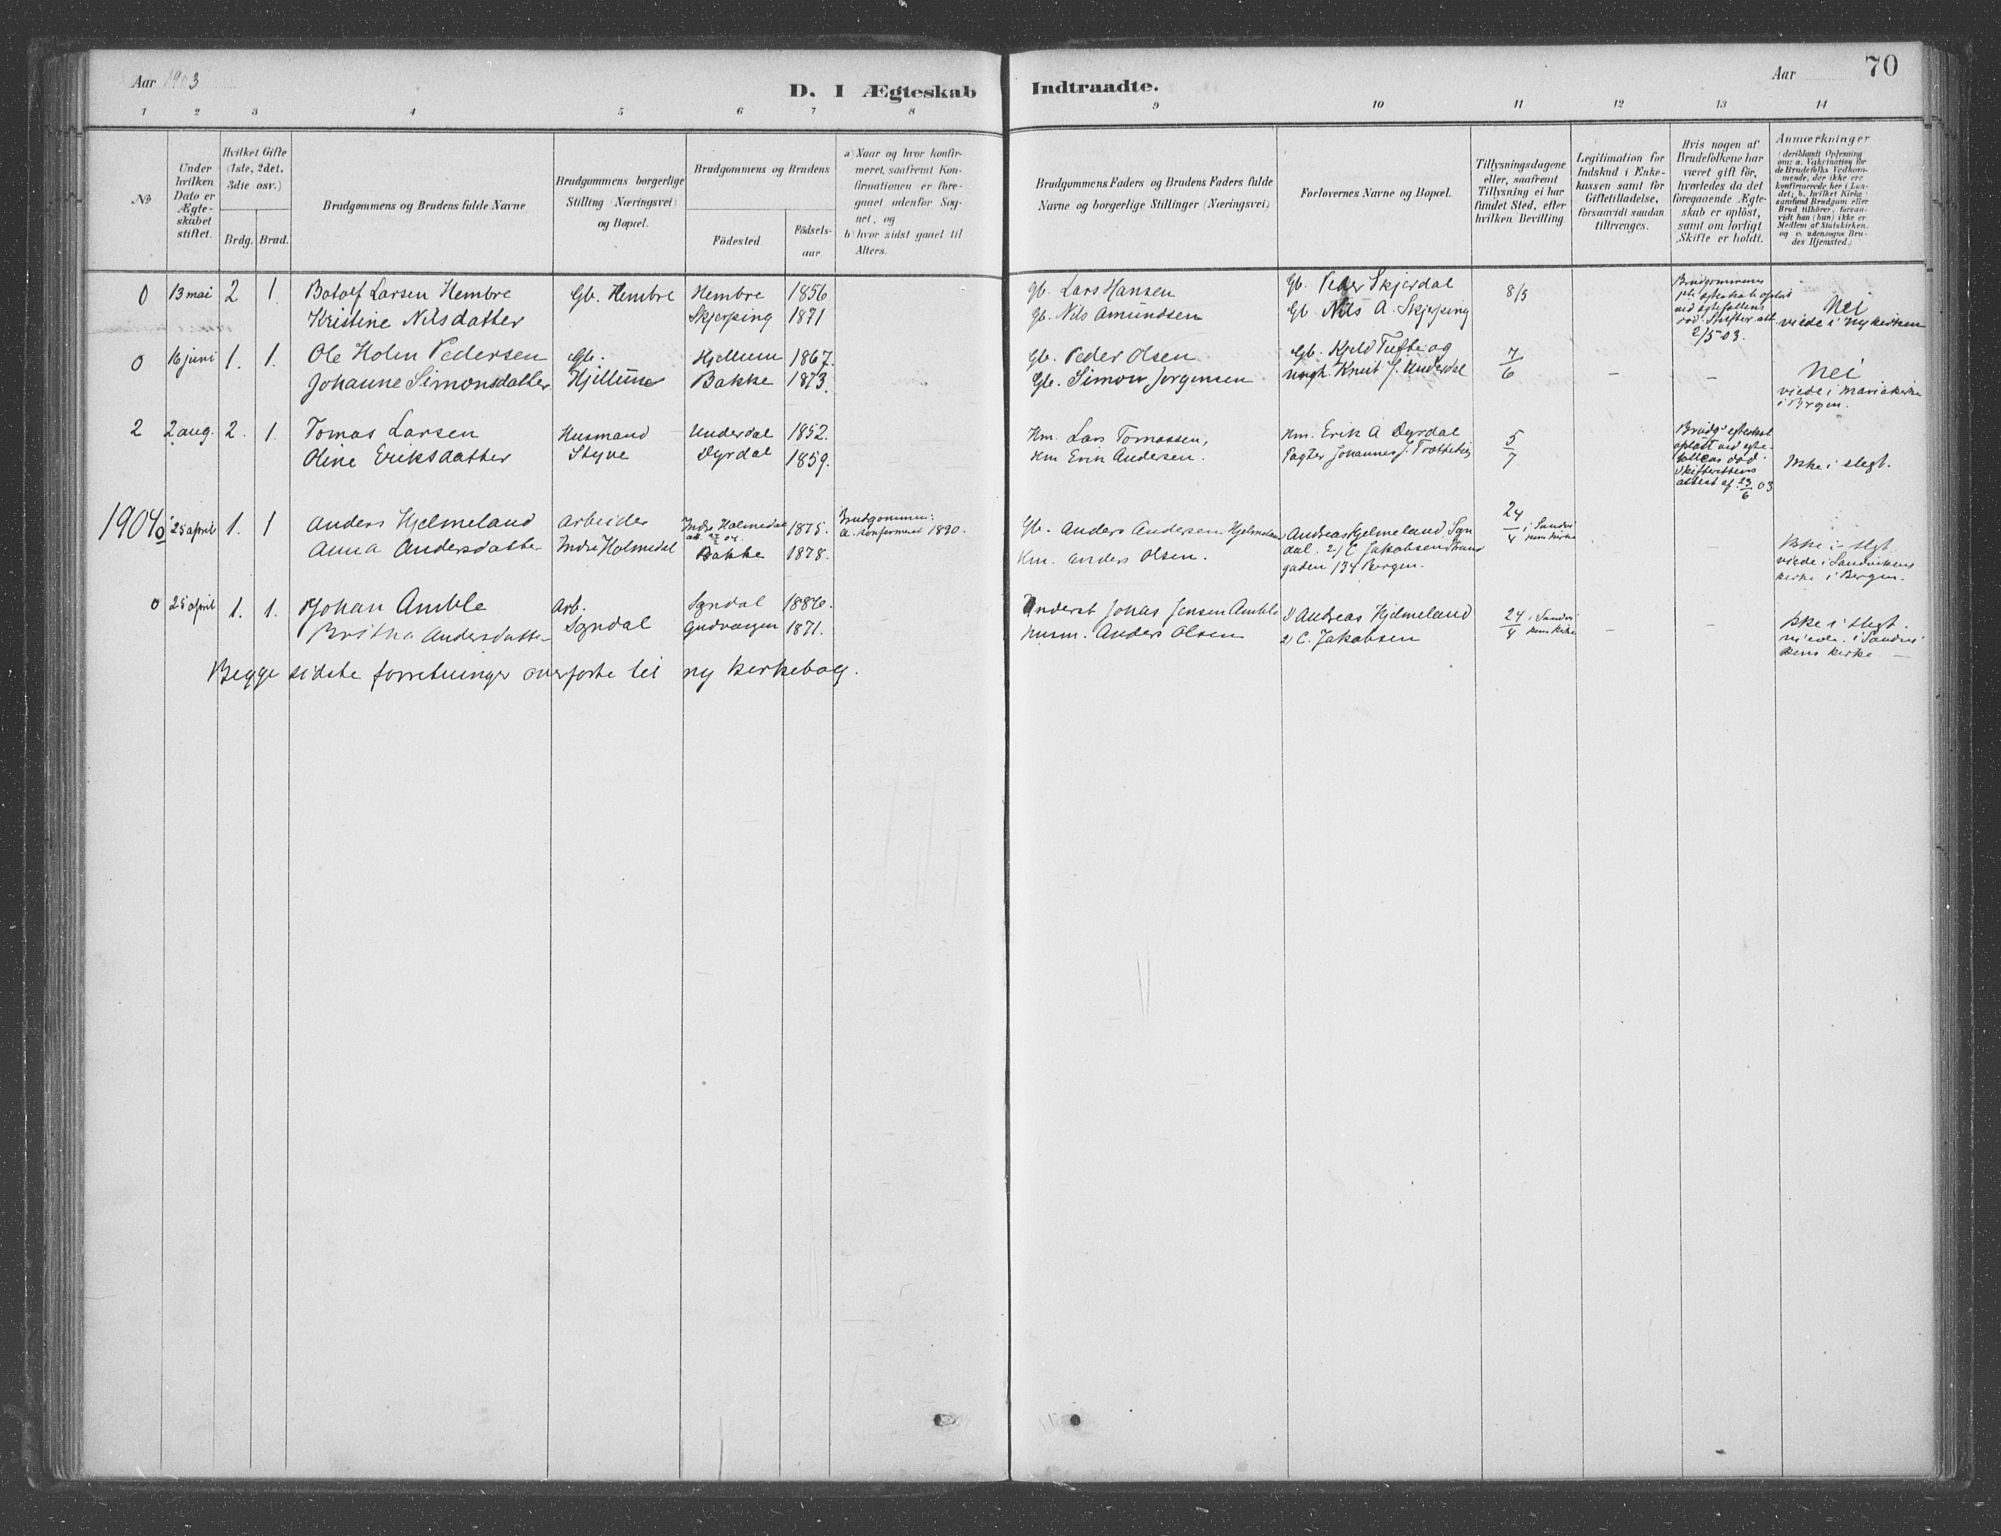 Aar 1903
D. I Ægteskab Indtraadte.
Aar
70
1 2 3 4 5 6 7 8 9 10 11 12 13 14
No
Under hvilken Dato er Ægteskabet stiftet.
Hvilket Gifte (1ste, 2det, 3die osv.)
Brdg. Brud.
Brudgommens og Brudens fulde Navne
Brudgommens borgerlige Stilling (Næringsvei) og Bopæl.
Brudgommens og Brudens
Födested
Födselsaar
a) Naar og hvor konfirmeret, saafremt Konfirmationen er foregaaet udenfor Sognet, og
b) hvor sidst gaaet til Alters.
Brudgommens Faders og Brudens Faders fulde Navne og borgerlige Stillinger (Næringsvei)
Forlovernes Navne og Bopæl.
Tillysningsdagene eller, saafremt Tillysning ei har fundet Sted, efter hvilken Bevilling.
Legitimation for Indskud i Enkekassen samt for Giftetilladelse, forsaavidt saadan tiltrænges.
Hvis nogen af Brudefolkene har været gift før, hvorledes da det foregaaende Ægteskab er opløst, samt om lovligt Skifte er holdt.
Anmærkninger (deriblandt Oplysning om: a. Vakcination for de Brudefolks Vedkommende, der ikke ere konfirmerede her i Landet; b. hvilket Kirkesamfund Brudgom eller Brud tilhörer, forsaavidt han (hun) ikke er Medlem af Statskirken, og c. udensogns Brudes Hjemsted.)
0 13 mai 2 1. Botolf Larsen Hembre Gb. Hembre Hembre 1856 Gb. Lars Hansen Gb. Peder Skjerdal 8/5
Kristine Nilsdatter Skjerping 1871 Gb. Nils Amundsen Gb. Nils A. Skjerping
Brudgommens
ved egtefellens
død. Skifter. att.
2/5 03.
Nei
viede i Nykirken
0 16 juni 1. 1. Ole Holm Pedersen Gb. Hjellum 1867. Gb. Peder Olsen Gb. Kjeld Tufte og 7/6 – –
Johanne Simonsdatter Hjellum Bakke 1873. Gb. Simon Jørgensen ungk. Knut J. Underdal
Nei
viede i Mariakirke
i Brgen.
2 2 aug. 2. 1. Tomas Larsen Husmand Underdal 1852. Hm. Lars Tomassen, Hm. Erik A Dyrdal 5/7
Oline Eriksdatter Styve Dyrdal 1859. Hm Erik Andersen. Pagter Johannes J.
Brudg. egteskab
opløst ved egte-
fællens død.
Skifterettens
attest af 23/6 03
Ikke i slegt.
1904 0 25 april 1. 1 Anders Hjelmeland Arbeider Indre Holmedal 1875. Brudgommen: Gb. Anders Andersen Hjelmeland Andreas Hjelmeland Sgn- 24/4 i Sandvi-
a. konfirmert 1890.
kens kirke
Anna Andersdatter Indre Holmedal Bakke 1878. Hm. Anders Olsen. dal. 2) C. Jakobsen Strand
gaden 134 Bergen.
Ikke i slegt.
viede i Sandvikens
kirke i Bergen.
0 25 april 1. 1. Johan Amble Arb. Sgndal 1886. Inderst Jonas Jensen Amble 1) Andreas Hjelmeland 24/4 i Sandvi- – –
kens kirke
Britha Andersdatter Sgndal Gudvangen 1871. Husm. Anders Olsen 2) C. Jakobsen
Ikke i slegt.
viede i Sandvi
kens kirke –
Begge sidste forretninger overførte til ny kirkebog.